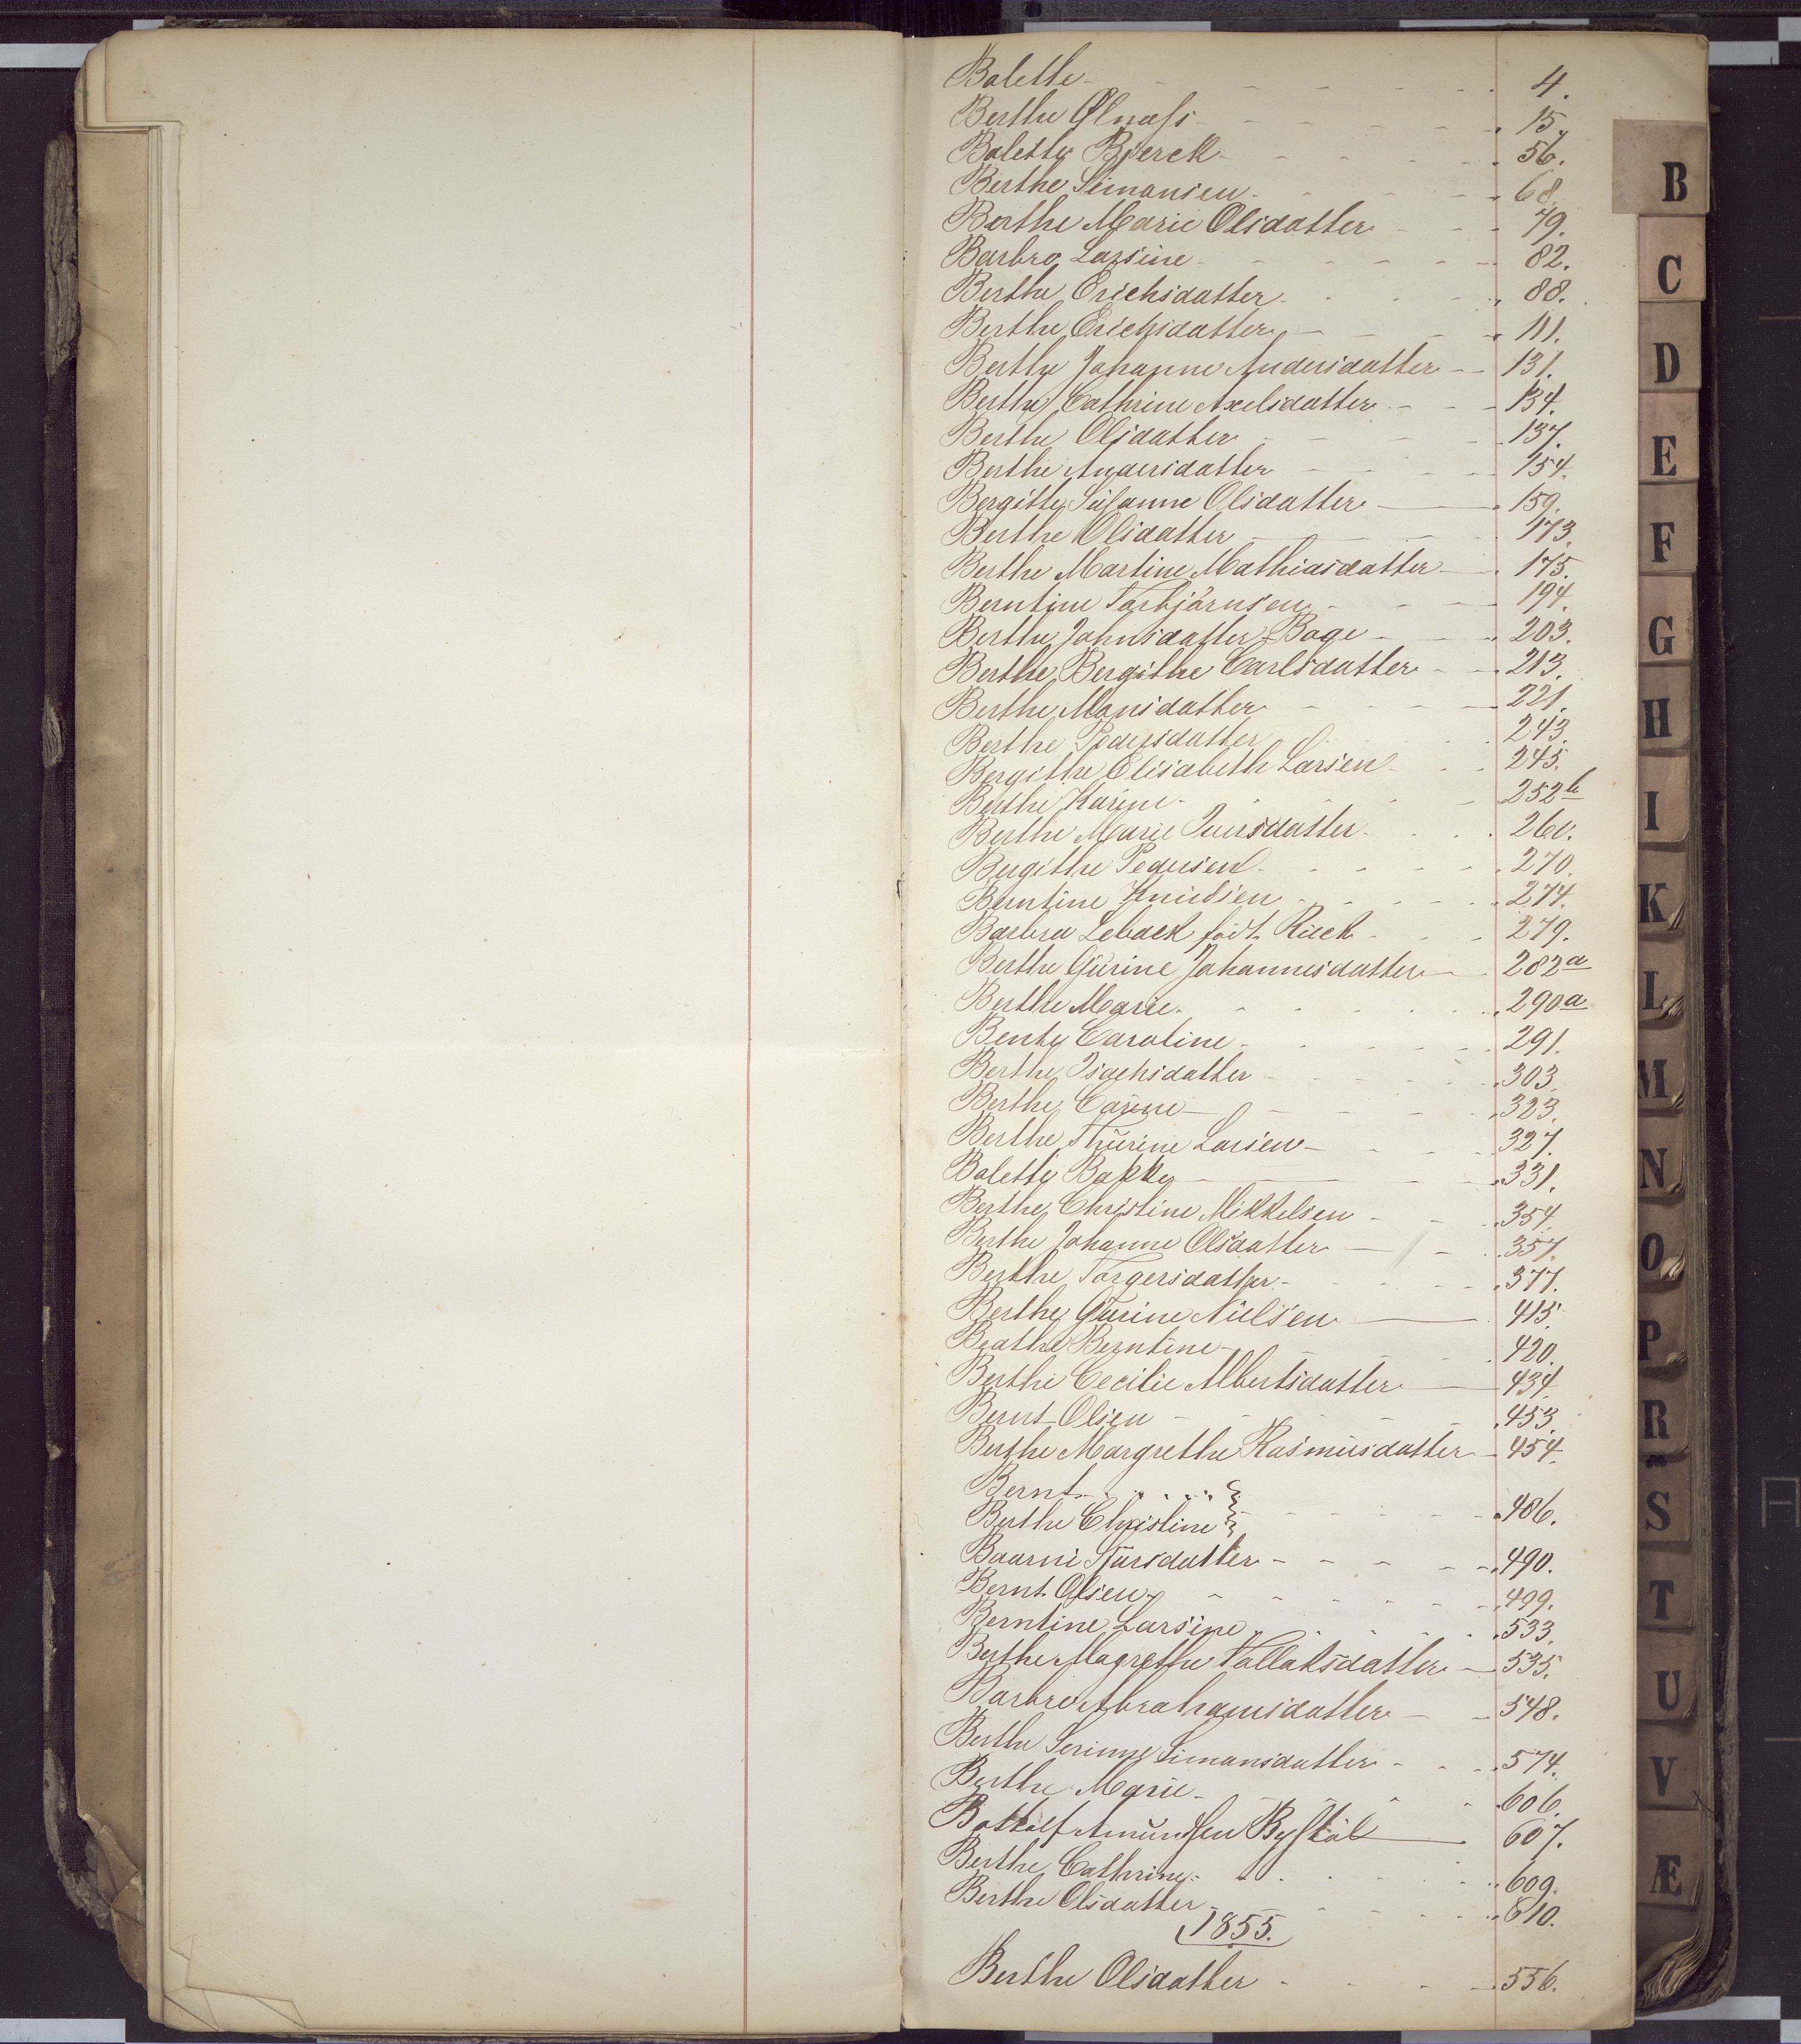 Bolette - - - - - - 4.
Berthe Olnæss - - - - - 15.
Bolette Bjerck - - - - - 56.
Berthe Simonsen - - - - 68.
Berthe Marie Olsdatter - - - 79.
Barbro Larsine - - - - - 82.
Berthe Erichsdatter - - - - 88.
Berthe Erichsdatter - - - - 111.
Berthe Johanne Andersdatter - - 131.
Berthe Cathrine Axelsdatter - - - 134.
Berthe Olsdatter - - - - 137.
Berthe Andersdatter - - - - 154.
Bergitte Susanne Olsdatter - 159.
Berthe Olsdatter - - - - 173.
Berthe Martine Mathiasdatter - 175.
Berntine Torbjörnsen - - - 194.
Berthe Johnsdatter Boge - - - 203.
Berthe Bergithe Carlsdatter - - 213.
Berthe Monsdatter - - - - 221.
Berthe Pedersdatter - - - - 243.
Bergithe Elisabeth Larsen - - - 245.
Berthe Karine - - - - - 252 b
Berthe Marie Iversdatter - - - 260.
Bergithe Pedersen - - - - 270.
Berntine Knudsen - - - - 274.
Barbra Leback født Rieck - - - 279.
Berthe Gurine Johannesdatter - 282 a
Berthe Marie - - - - - 290 a
Bente Caroline - - - - - 291.
Berthe Isachsdatter - - - - 303.
Berthe Carine - - - - - 323.
Berthe Thurine Larsen - - - - 327.
Bolette Bakke - - - - 331.
Berthe Christine Mikkelsen - - - 354.
Berthe Johanne Olsdatter - - - 357.
Berthe Torgersdatter - - - - 377.
Berthe Gurine Nielsen - 415.
Beathe Berntine - - - - 420.
Berthe Cecilie Albertsdatter - 434.
Bernt Olsen - - - - - 453.
Berthe Margrethe Rasmusdatter - 454.
Bernt . . . . . }
Berthe Christine } - - - - - 486.
Baarni Sjursdatter - - - - 490.
Bernt Olsen - - - - - 499.
Berntine Larsine - - - - 533.
Berthe Magrethe Tollaksdatter - 535.
Barbro Abrahamsdatter - - 548.
Berthe Serinne Simonsdatter - - - 574.
Berthe Marie - - - - - 606.
Bottolf Amundsen - 607.
Berthe Cathrine - - - - - 609.
Berthe Olsdatter - - - - - 610.
1855.
Berthe Olsdatter - - - - 556.
B
C
D
E
F
G
H
I
K
L
M
N
O
P
R
S
T
U
V
Æ